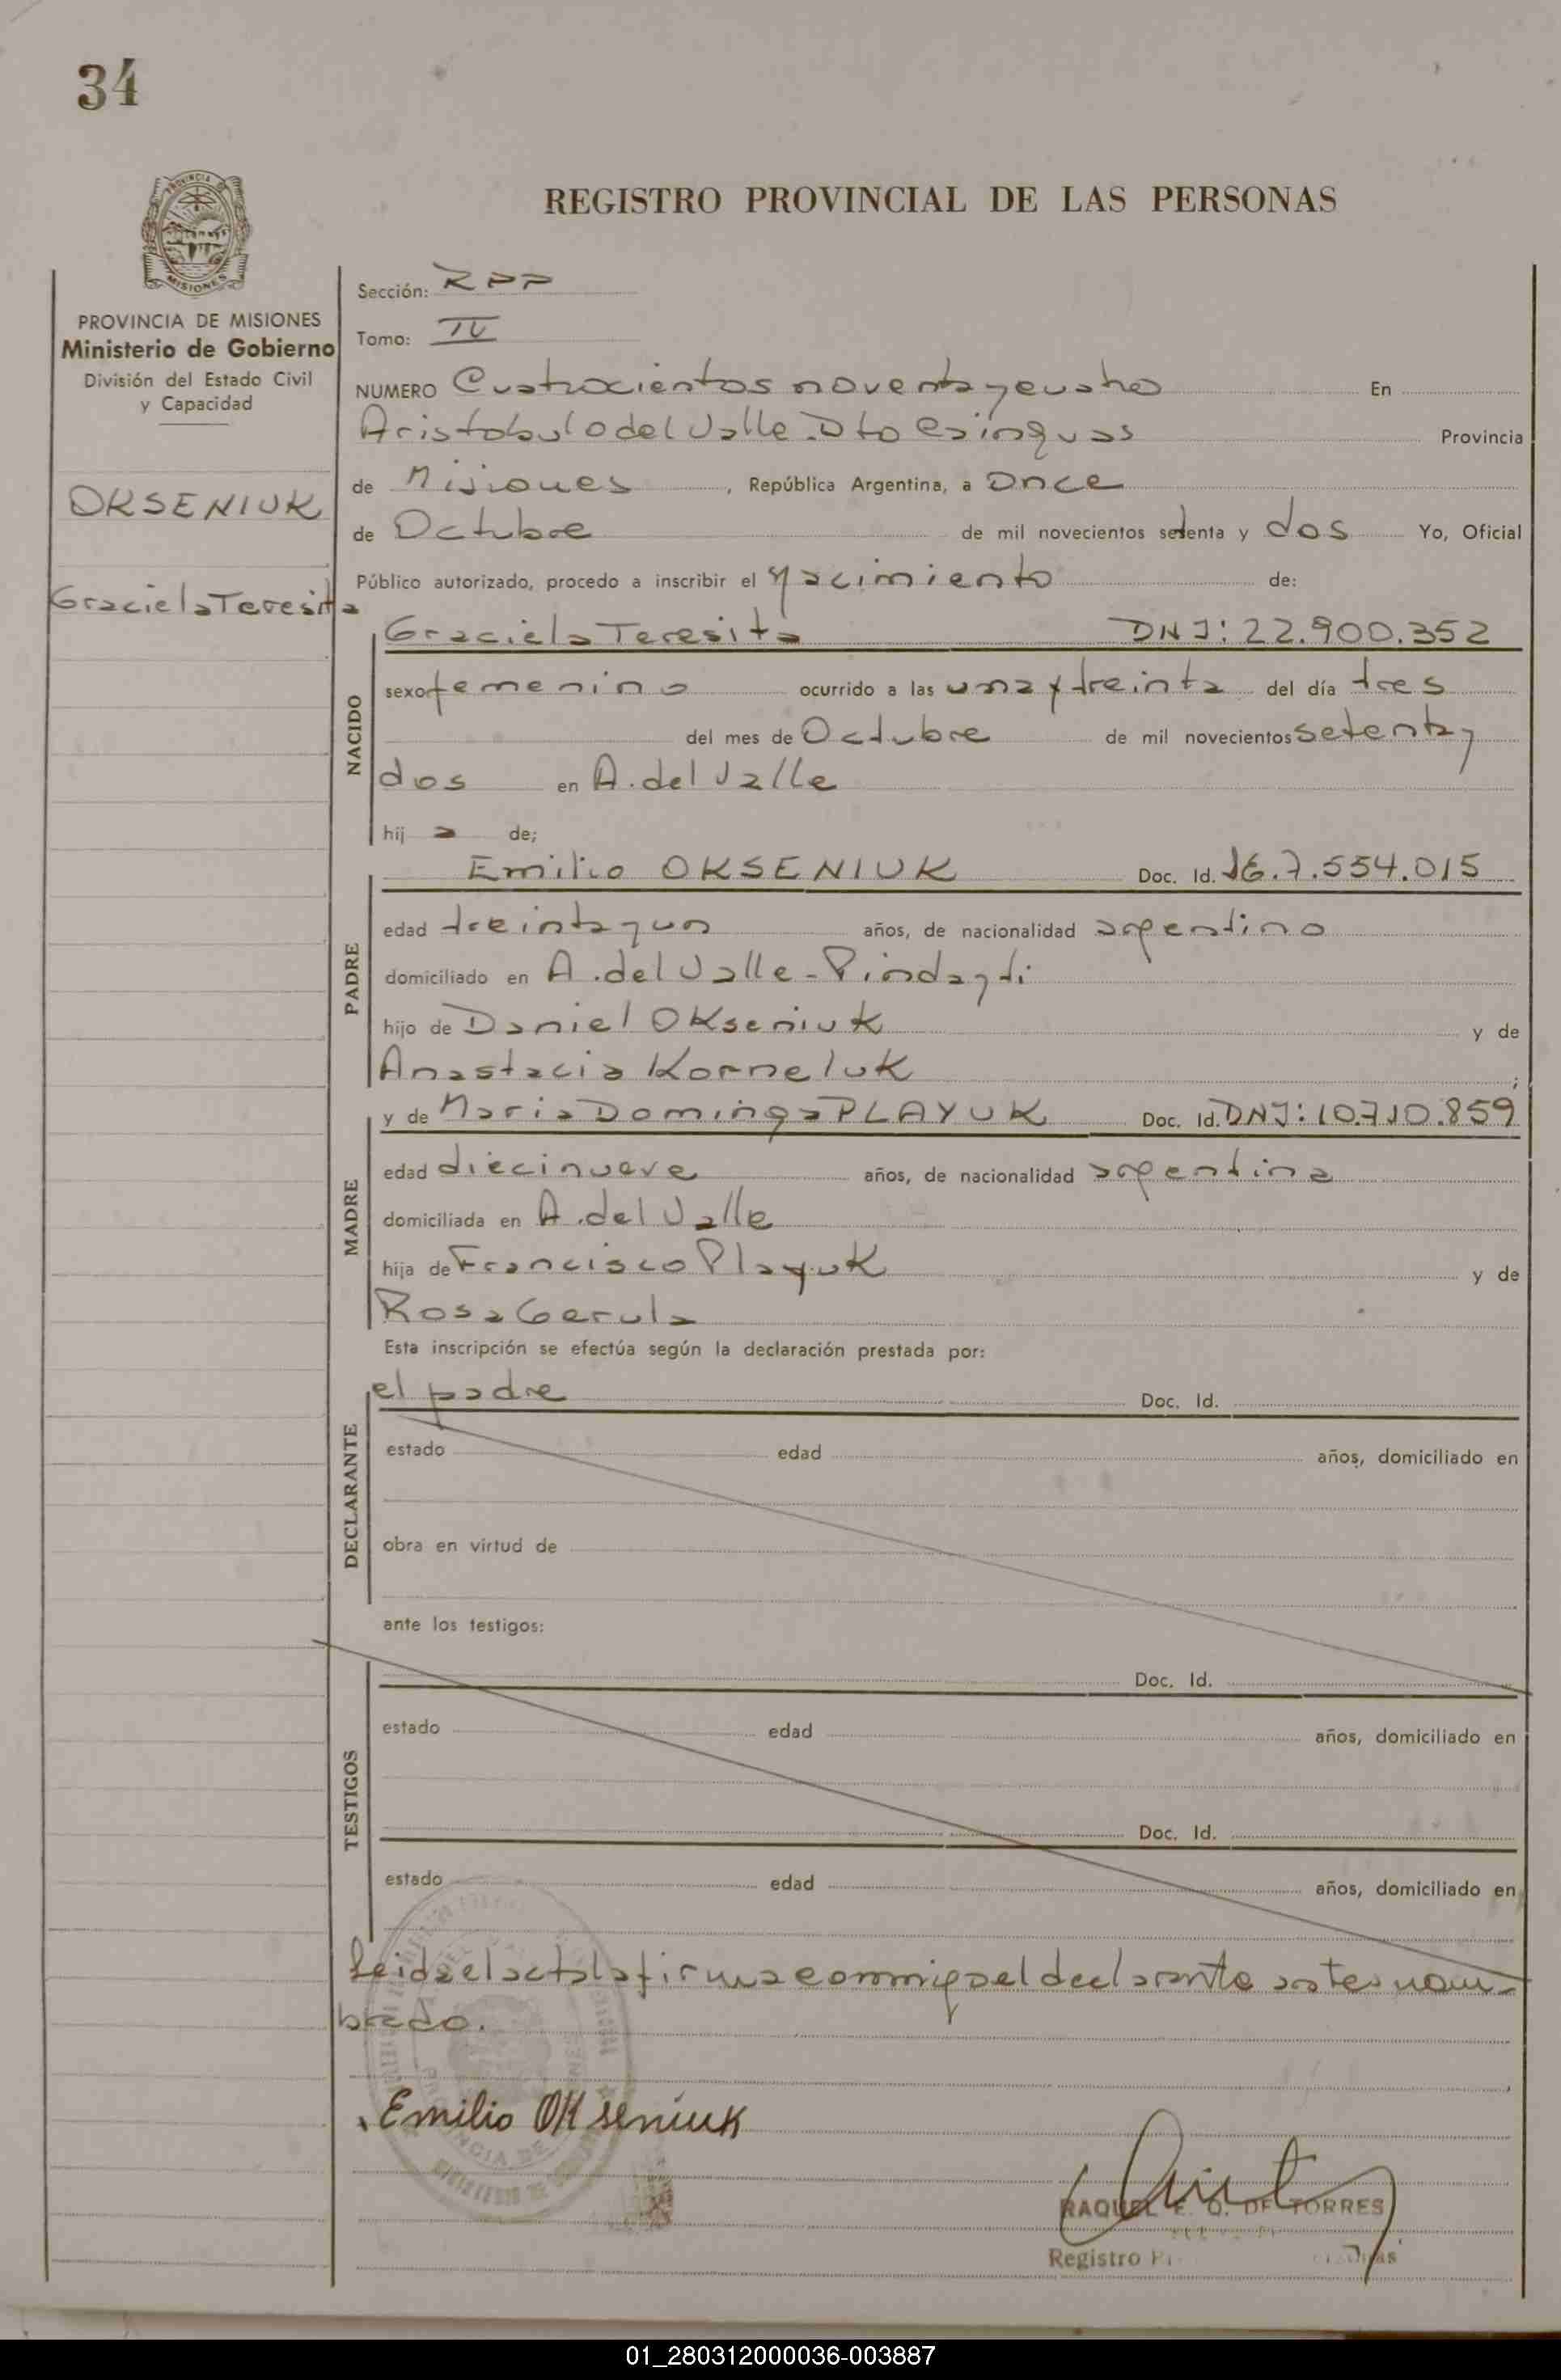 34
REGISTRO PROVINCIAL DE LAS PERSONAS
MISIONES
PROVINCIA DE MISIONES
Ministerio de Gobierno
División del Estado Civil
y Capacidad
OKSENIUK
Graciela Teresita
Sección: RPP
Tomo: IV
NUMERO Cuatrocientos noventa y cuatro En
Aristobulo del Valle. Dto Cainguas Provincia
de Misiones, República Argentina, a Once
de Octubre de mil novecientos setenta y dos Yo, Oficial
Público autorizado, procedo a inscribir el Nacimiento de:
NACIDO
Graciela Teresita DNI: 22.900.352
sexo femenino ocurrido a las una y treinta del día tres
del mes de Octubre de mil novecientos setenta y
dos en A. del Valle
hij a de;
PADRE
Emilio OKSENIUK Doc. Id. 7.554.015
edad treinta y un años, de nacionalidad argentino
domiciliado en A. del Valle - Pindayti
hijo de Daniel OKseniuk y de
Anastacia Korneluk ;
MADRE
y de Maria Dominga PLAYUK Doc. Id. DNI: 10.710.859
edad diecinueve años, de nacionalidad argentina
domiciliada en A. del Valle
hija de Francisco Playuk y de
Rosa Gerula
Esta inscripción se efectúa según la declaración prestada por:
DECLARANTE
el padre Doc. Id.
estado edad años, domiciliado en
obra en virtud de
ante los testigos:
TESTIGOS
Doc. Id.
estado edad años, domiciliado en
Doc. Id.
estado edad años, domiciliado en
Leida el acta la firma conmigo el declarante antes nom-
brado.
Emilio OKseniuk
RAQUEL E. O. DE TORRES
Registro
01_280312000036-003887